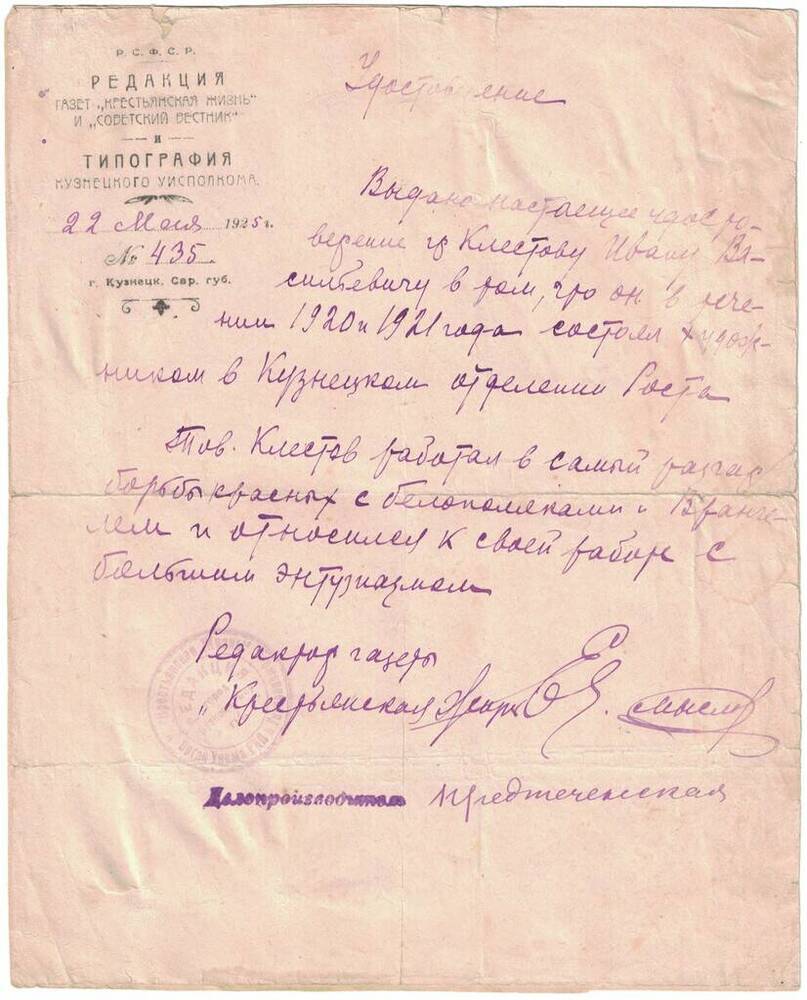 Р. С. Ф. С. Р.
РЕДАКЦИЯ
ГАЗЕТ „КРЕСТЬЯНСКАЯ ЖИЗНЬ“
И „СОВЕТСКИЙ ВЕСТНИК“
— и —
ТИПОГРАФИЯ
КУЗНЕЦКОГО УИСПОЛКОМА.
22 Мая 1925 г.
№ 435.
г. Кузнецк, Сар. губ.
Удостоверение
Выдано настоящее удосто-
верение гр Клестову Ивану Ва-
сильевичу в том, что он в тече-
нии 1920 и 1921 года состоял худож-
ником в Кузнецком отделении Роста
Тов. Клестов работал в самый разгар
борьбы красных с белополяками и Вранге-
лем и относился к своей работе с
большим энтузиазмом
Редактор газеты
„Крестьянская Жизнь
Делопроизводитель Предтеченская